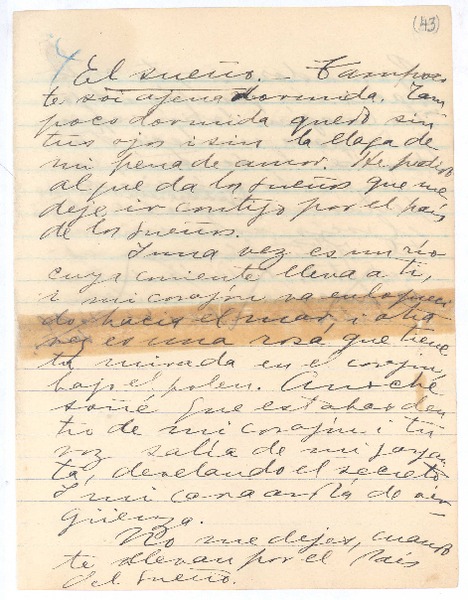 (43)
El sueño. - Tampoco
te soi ajena dormida. Tam
poco dormida quedo sin
tus ojos i sin la llaga de
mi pena de amor. He pedido
al que da los sueños que me
deje ir contigo por el país
de los sueños.
I una vez es un río
cuya corriente lleva a ti,
i mi corazón va enloqueci
do hacia el mar, i otra
vez es una rosa que tiene
tu mirada en el corazón,
bajo el polen. Anoche
soñé que estabas den
tro de mi corazón i tu
voz salía de mi gargan
ta, develando el secreto
I mi cara ardía de ver-
güenza.
No me dejes, cuando
te llevan por el País
del sueño.